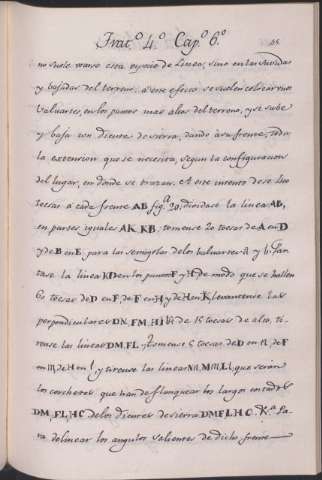 Trat.º 4.º Cap.º 6.º
no suele usarse esta especie de Lineas, sino en las subidas
y bajadas del terreno. A este efecto se suelen colocar sus
Valuartes, en los puntos mas altos del terreno, y se sube
y baja con dientes de sierra, dando a su frente, toda
la extension que se necesita, segun la configuracion
del lugar, en donde se trazan. A este intento dese
toesas a cada frente AB fig.ª 30, dividase la linea AB,
en partes iguales AK KB, tomense 20 toesas de A en D
y de B en E, para las semigolas de los baluartes A y B
tase la linea KD en los puntos F y H de modo que se hallen
60 toesas de D en F, de F en H y de H en K levantense las
perpendiculares DN, FM, HI de 15 toesas de alto, ti-
rense las lineas DM, FL, tomense 5 toesas de D en N, de F
en M, de H en I, y tirense las lineas que seran
los corchetes, que han de flanquear los largos costados
DM, FL, HC de los dientes de sierra DMFLHC. Pa-
ra delinear los angulos salientes de dicho frente